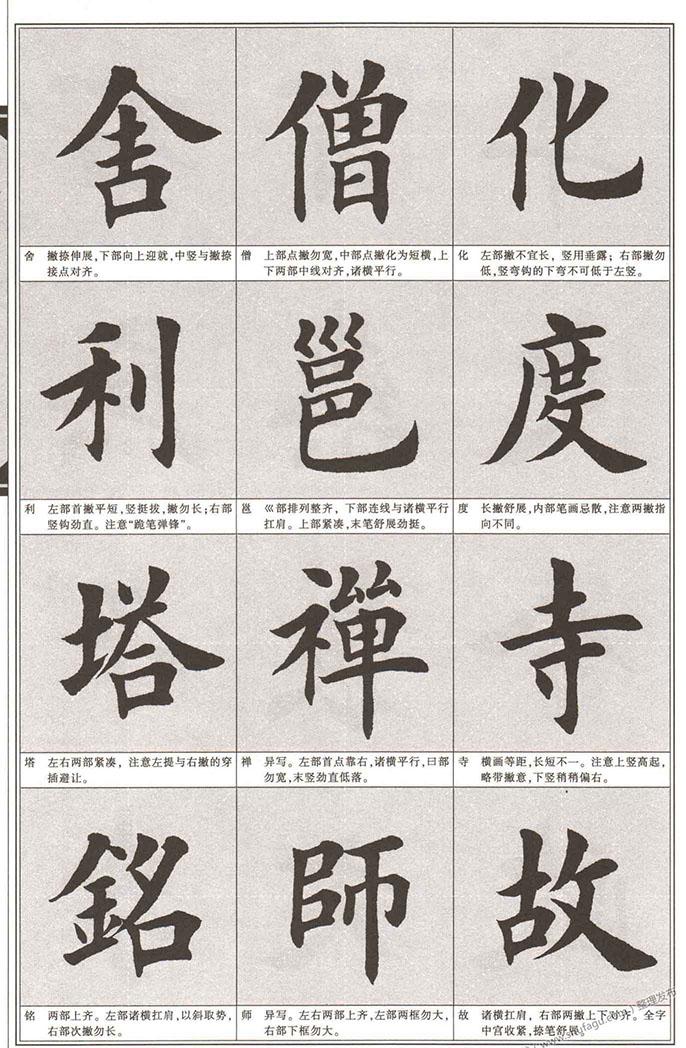 化
化 左部撇不宜长，竖用垂露；右部撇勿
低，竖弯钩的下弯不可低于左竖。
度
度 长撇舒展，内部笔画忌散，注意两撇指
向不同。
寺
寺 横画等距，长短不一。注意上竖高起，
略带撇意，下竖稍稍偏右。
故
故 诸横扛肩，右部两撇上下对头。全字
中宫收紧，捺笔舒展。
僧
僧 上部点撇勿宽，中部点撇化为短横，上
下两部中线对齐，诸横平行。
邕
邕 巛部排列整齐，下部连线与诸横平行
扛肩。上部紧凑，末笔舒展劲挺。
禪
禅 异写。左部首点靠右，诸横平行，曰部
勿宽，末竖劲直低落。
師
师 异写。左右两部上齐，左部两框勿大，
右部下框勿大。
舍
舍 撇捺伸展，下部向上迎就，中竖与撇捺
接点对齐。
利
利 左部首撇平短，竖挺拔，撇勿长；右部
竖钩劲直。注意“跪笔弹锋”。
塔
塔 左右两部紧凑，注意左提与右撇的穿
插避让。
銘
铭 两部上齐。左部诸横扛肩，以斜取势，
右部次撇勿长。
整理发布